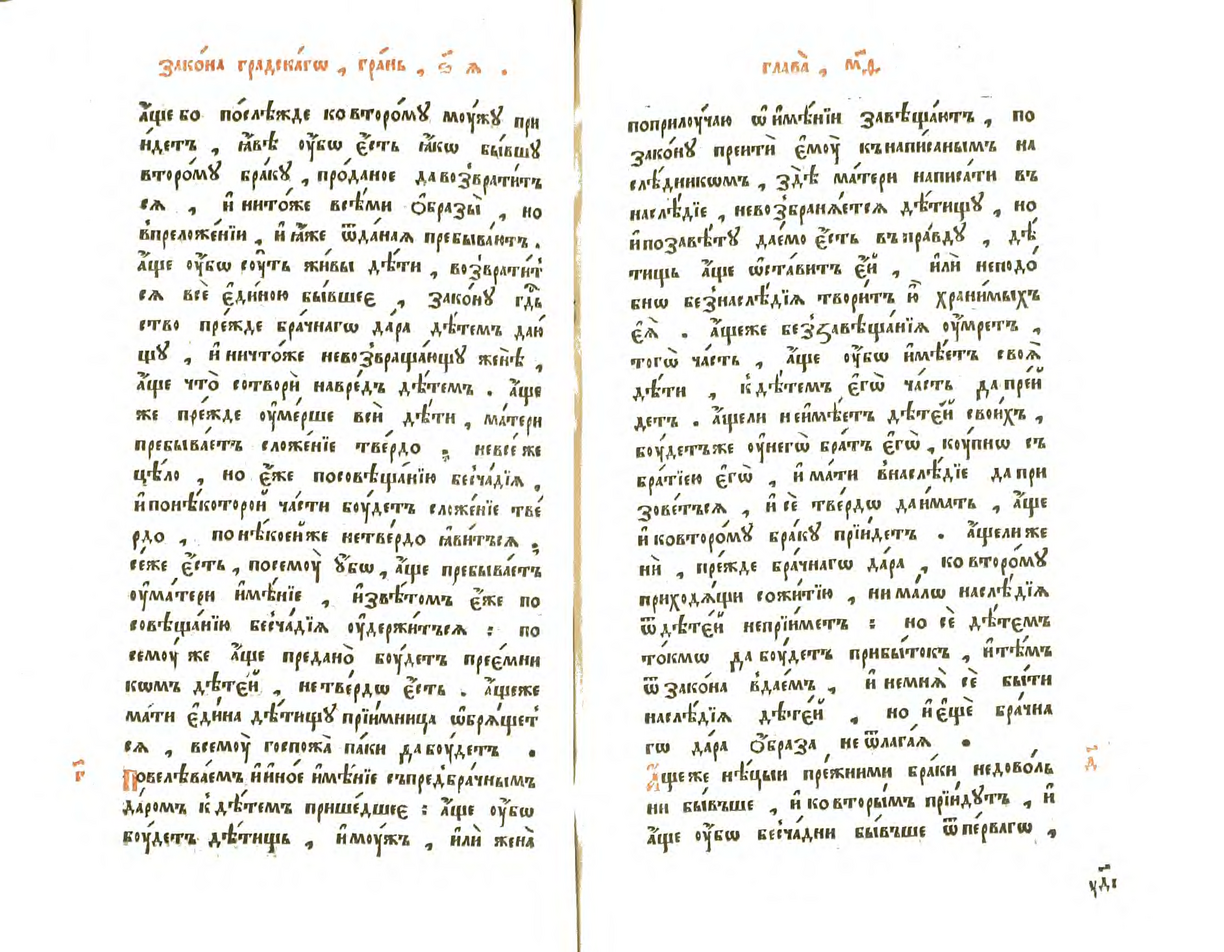 Зако́на градска́гѡ , гра́нь , ѕ҃ ѧ .
а҆́ще бо по́слѣжде ко второ́мꙋ моу́жꙋ при
и́детъ , ꙗ҆́вѣ оу҆́бѡ є҆́сть ꙗ҆́кѡ бы́вшꙋ
второ́мꙋ бра́кꙋ , про́даное да возврати́тъ
сѧ , и҆ ни то́же всѣ́ми ѻ҆́бразы̀ , но
впреложе́нїи , и҆ ꙗ҆́же ѿда́наѧ пребыва́ютъ .
а҆́ще оу҆́бѡ соу́ть жи́вы дѣ́ти , возврати́т
сѧ всѐ є҆ди́ною бы́вшее , зако́нꙋ гд҇ь
ство пре́жде бра́чнагѡ да́ра дѣ́темъ даю́
щꙋ , и҆ ничто́же невозвраща́ющꙋ женѣ̀ ,
а҆́ще что̀ сотворѝ навре́дъ дѣ́темъ . а҆́ще
же пре́жде оу҆ме́рше всѝ дѣ́ти , ма́тери
пребыва́етъ сложе́нїе тве́рдо ; невсе́ же
цѣ́ло , но є҆́же посовѣща́нїю бесча́дїѧ ,
и҆ понѣ́которой ча́сти боу́детъ сложе́нїе тве́
рдо , по нѣ́коей же нетве́рдо ꙗ҆ви́тьсѧ ;
се́же є҆́сть , посемоу̀ ᲂу҆́бѡ , а҆́ще пребыва́етъ
оу҆ма́тери и҆мѣ́нїе , и҆звѣ́томъ є҆́же по
совѣща́нїю бесча́дїѧ оу҆держи́тьсѧ : по
семоу́ же а҆́ще предано̀ боу́детъ прее́мни
кѡмъ дѣте́й , нетве́рдѡ є҆́сть . а҆́щеже
ма́ти є҆ди́на дѣ́тищꙋ прїи́мница ѡ҆брѧ́щет
сѧ , всемоу̀ госпожа̀ па́ки да боу́детъ .
г҃
Повелѣва́емъ и҆ и҆но́е и҆мѣ́нїе съпредбра́чнымъ
да́ромъ к дѣ́темъ прише́дшее : а҆́ще оу҆́бѡ
боу́детъ дѣ́тищь , и҆ моу́жъ , и҆лѝ жена̀
глава̀ , м҃д .
поприлоу́чаю ѡ҆ и҆мѣ́нїи завѣща́ютъ , по
зако́нꙋ преитѝ є҆моу̀ къ написа́нымъ на
слѣ́дникѡмъ , здѣ̀ ма́тери написа́ти въ
наслѣ́дїе , невозбранѧ́етсѧ дѣ́тищꙋ , но
и҆ позавѣ́тꙋ дае́мо є҆́сть въ пра́вдꙋ , дѣ́
тищь а҆́ще ѡ҆ста́витъ є҆́й , и҆лѝ неподо́
бнѡ безнаслѣ́дїѧ твори́тъ ю҆̀ храни́мыхъ
є҆ѧ̀ . а҆́щеже беззавѣща́нїѧ оу҆́мретъ ,
тогѡ̀ ча́сть , а҆́ще оу҆́бѡ и҆мѣ́етъ своѧ̀
дѣ́ти , к дѣ́темъ є҆гѡ̀ ча́сть да пре́й
детъ . а҆́щели неимѣ́етъ дѣте́й свои́хъ ,
боу́детъже оу҆негѡ̀ бра́тъ є҆гѡ̀ , коу́пнѡ съ
бра́тїею є҆гѡ̀ , и҆ ма́ти внаслѣ́дїе да при
зове́тьсѧ , и҆ сѐ тве́рдѡ да и́мать , а҆́ще
и҆ ко второ́мꙋ бра́кꙋ прїи́детъ . а҆́щели же
нѝ , пре́жде бра́чнагѡ да́ра , ко второ́мꙋ
приходѧ́щи сожи́тїю , ни ма́лѡ наслѣ́дїѧ
ѿ дѣте́й непрїи́метъ : но сѐ дѣ́темъ
то́кмѡ да боу́детъ прибы́токъ , и҆ тѣ́мъ
ѿ зако́на вдае́мъ , и҆ немнѧ̀ сѐ бы́ти
наслѣ́дїѧ дѣте́й , но и҆ є҆щѐ бра́чна
гѡ да́ра ѻ҆́браза не ѿлага́ѧ .
д҃
А҆́щеже нѣ́цыи пре́жними бра́ки недово́ль
ни бы́въше , и҆ ко вторы́мъ прїи́дꙋтъ , и҆
а҆́ще оу҆́бѡ бесча́дни бы́въше ѿ пе́рвагѡ ,
уд҃і